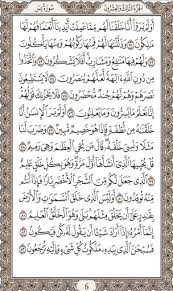 الجزء الثالث والعشرون سورة يس
أولم يروا أنا خلقنا لهم مما عملت أيدينا أنعاما فهم لها
مالكون ٧١ وذللناها لهم فمنها ركوبهم ومنها يأكلون
٧٢ ولهم فيها منافع ومشارب أفلا يشكرون ٧٣ واتخذوا
من دون الله ءالهة لعلهم ينصرون ٧٤ لا يستطيعون
نصرهم وهم لهم جند محضرون ٧٥ فلا يحزنك قولهم
إنا نعلم ما يسرون وما يعلنون ٧٦ أولم ير الإنسان أنا
خلقناه من نطفة فإذا هو خصيم مبين ٧٧ وضرب لنا
مثلا ونسي خلقه قال من يحي العظام وهي رميم ٧٨
قل يحييها الذي أنشأها أول مرة وهو بكل خلق عليم
٧٩ الذي جعل لكم من الشجر الأخضر نارا فإذا أنتم
منه توقدون ٨٠ أوليس الذي خلق السماوات والأرض
بقادر على أن يخلق مثلهم بلى وهو الخلاق العليم ٨١
إنما أمره إذا أراد شيئا أن يقول له كن فيكون ٨٢
فسبحان الذي بيده ملكوت كل شيء وإليه ترجعون ٨٣
6